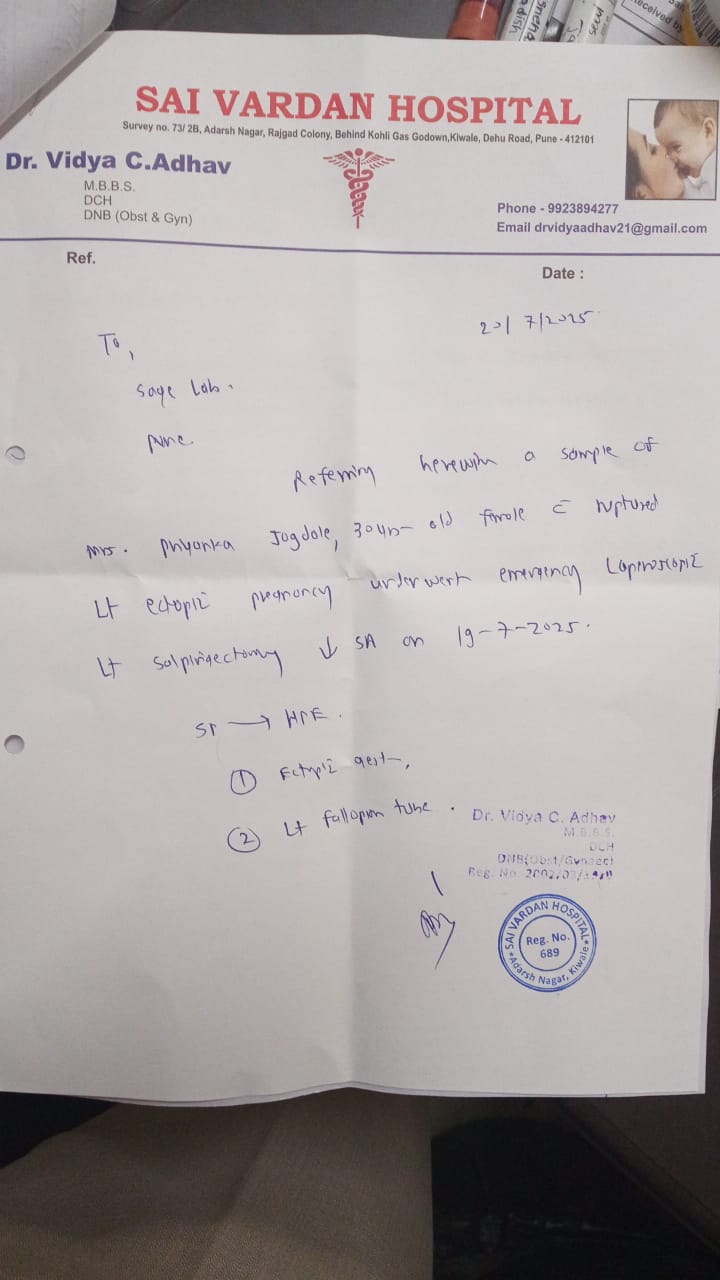 SAI VARDAN HOSPITAL
Survey no. 73/ 2B, Adarsh Nagar, Rajgad Colony, Behind Kohli Gas Godown,Kiwale, Dehu Road, Pune - 412101
Dr. Vidya C.Adhav
M.B.B.S.
DCH
DNB (Obst & Gyn)
Phone - 9923894277
Email drvidyaadhav21@gmail.com
Ref.
Date :
20/7/2025
To,
Sage Lab.
Pune
Referring herewith a sample of
Mrs. Priyanka Jagdale, 30 yr old female c̄ ruptured
Lt ectopic pregnancy underwent emergency Laparoscopic
Lt salpingectomy ↓ SA on 19-7-2025.
→ HPE.
① Ectopic gest-,
② Lt fallopian tube.
Dr. Vidya C. Adhav
M.B.B.S.
DCH
DNB(Obst/Gynaec)
Reg. No
SAI VARDAN HOSPITAL
Reg. No.
689
Adarsh Nagar, Kiwale